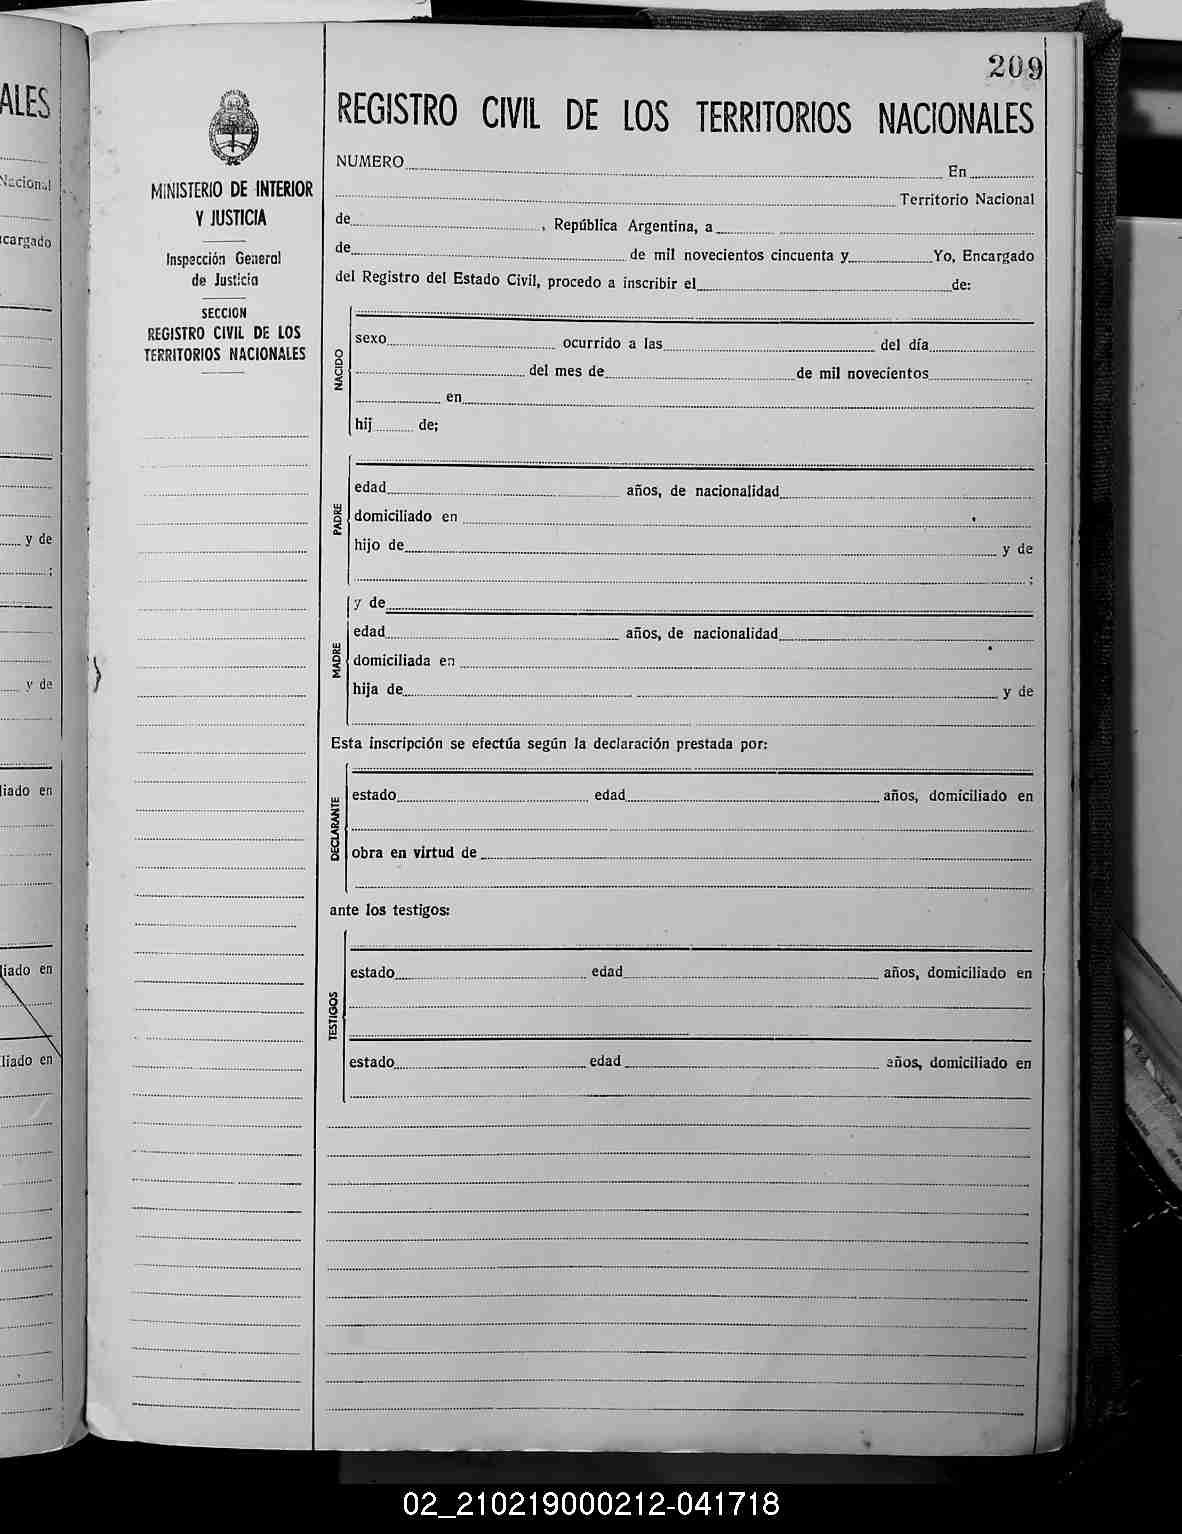 209
REGISTRO CIVIL DE LOS TERRITORIOS NACIONALES
MINISTERIO DE INTERIOR
Y JUSTICIA
Inspección General
de Justicia
SECCION
REGISTRO CIVIL DE LOS
TERRITORIOS NACIONALES
NUMERO En
Territorio Nacional
de , República Argentina, a
de de mil novecientos cincuenta y Yo, Encargado
del Registro del Estado Civil, procedo a inscribir el de:
NACIDO
sexo ocurrido a las del día
del mes de de mil novecientos
en
hij de;
PADRE
edad años, de nacionalidad
domiciliado en
hijo de y de
;
MADRE
y de
edad años, de nacionalidad
domiciliada en
hija de y de
Esta inscripción se efectúa según la declaración prestada por:
DECLARANTE
estado edad años, domiciliado en
obra en virtud de
ante los testigos:
TESTIGOS
estado edad años, domiciliado en
estado edad años, domiciliado en
ALES
Nacional
cargado
y de
;
y de
liado en
liado en
liado en
02_210219000212-041718